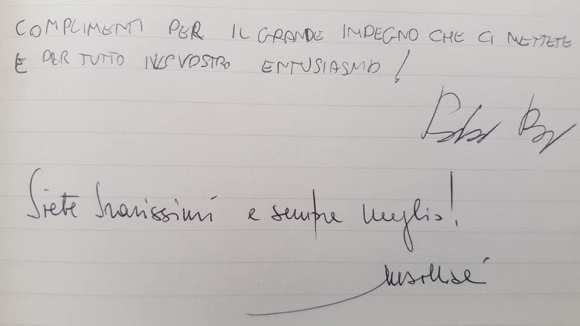 COMPLIMENTI PER IL GRANDE IMPEGNO CHE CI METTETE
E PER TUTTO IL VOSTRO ENTUSIASMO!
Siete bravissimi e sempre meglio!